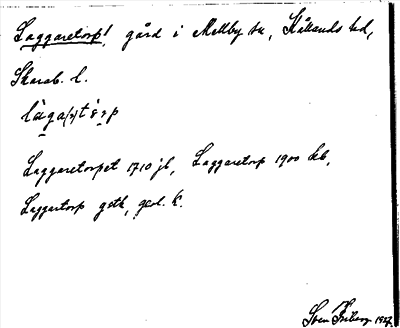 Laggaretorp, gård i Mellby sn, Kållands hd,
Skarab. l.
låga(r)tårp
Laggaretorpet 1710 jb, Laggaretorp 1900 kb,
Laggartorp gstk, geol. k.
Sven Friberg 1927.